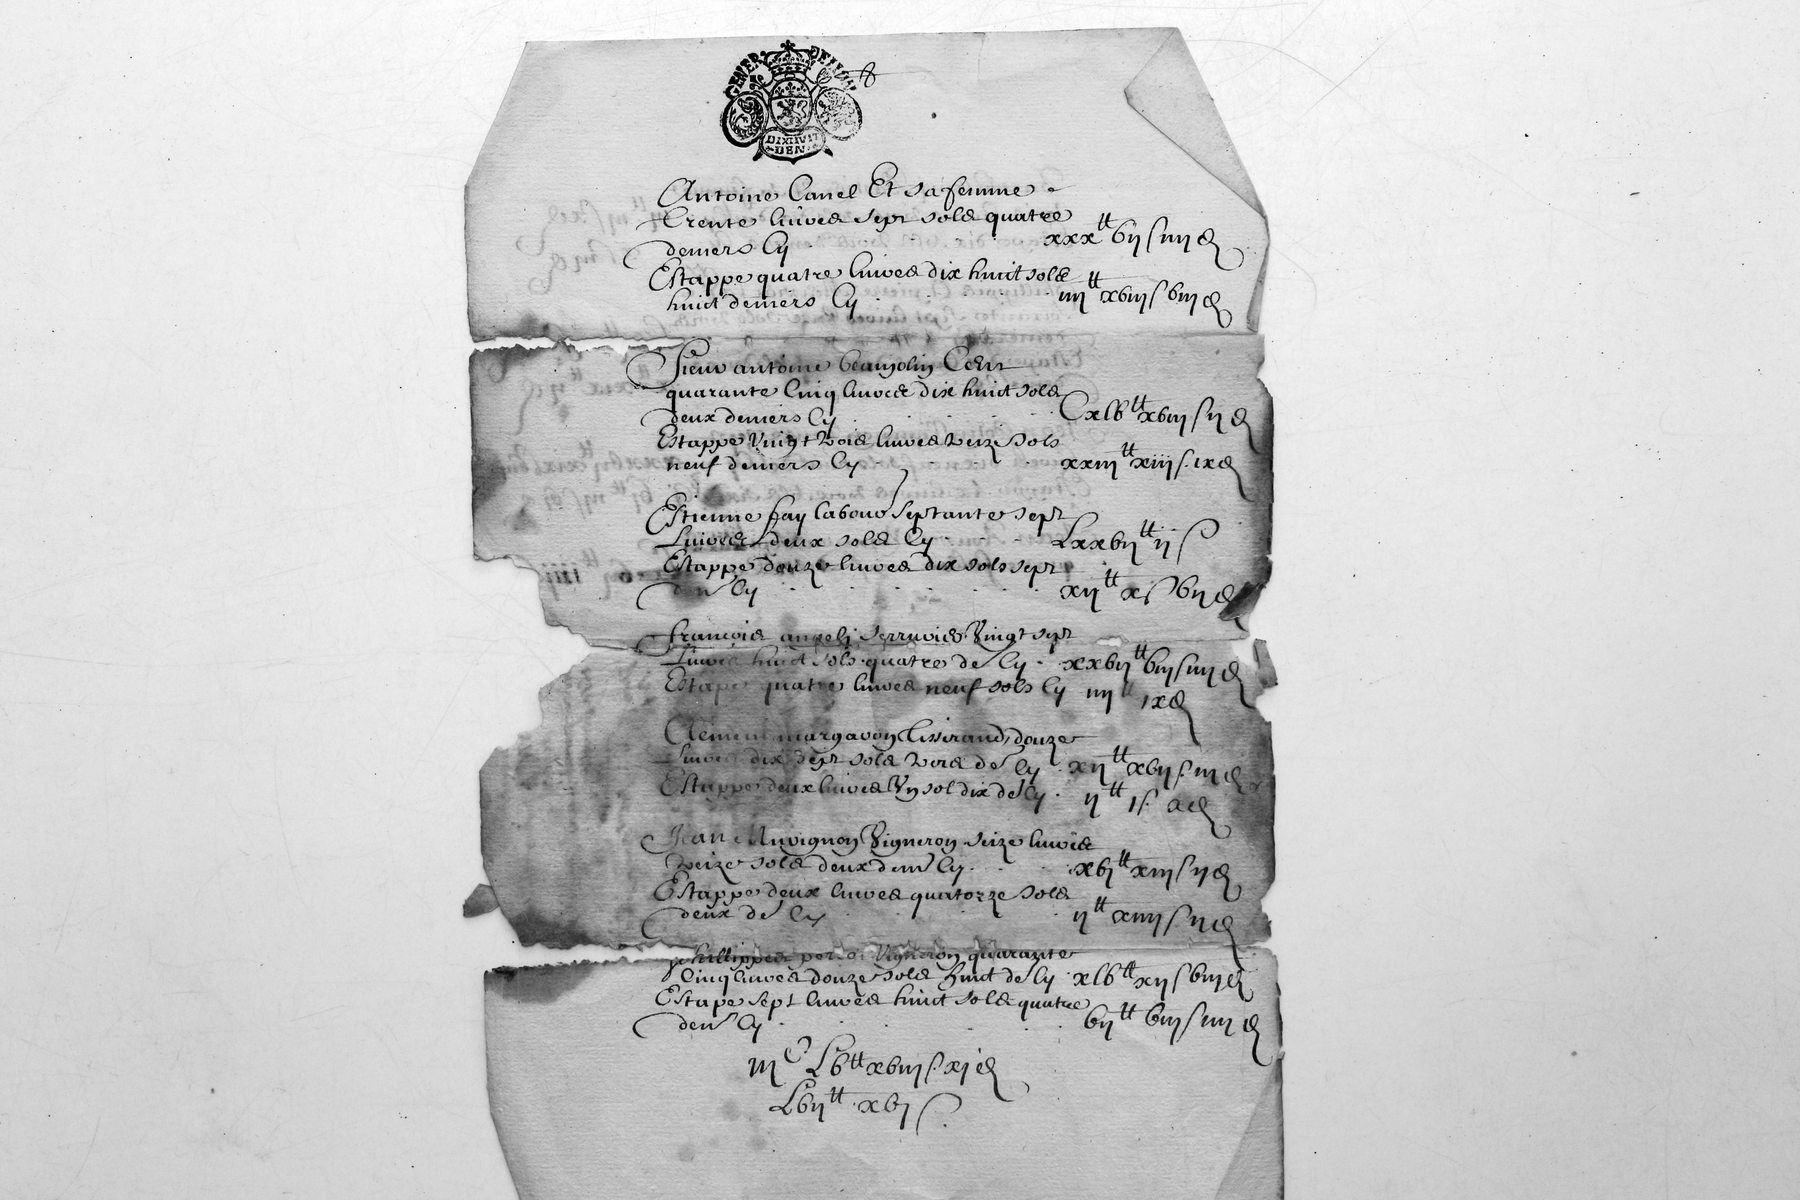 GENER DE LYON
DIXHVIT
DEN
Antoine Canel Et sa femme
trente livres sept sols quatre
deniers Cy xxx tt bij s iiij d
Estappe quatre livres dix huit sols
huict deniers Cy iiij tt xbiij s biij d
Sieur antoine beaujolin Cent
quarante cinq livres dix huict sols
deux deniers Cy Cxlb tt xbiij s ij d
Estappe Vingt trois livres treize sols
neuf deniers Cy xxiij tt xiij s ix d
Estienne fay labour septante sept
Livres deux sols Cy Lxxbij tt ij s
Estappe douze livres dix sols sept
den Cy xij tt x s bij d
francois angeli serrurier Vingt sept
Livres huict sols quatre de Cy xxbij tt biij s iiij d
Estape quatre livres neuf sols Cy iiij tt ix d
Clement margaron tisserand douze
Livres dix sept sols trois de Cy xij tt xbij s iij d
Estappe deux livres Un sol dix de Cy ij tt i s x d
Jean Vigneron seize livres
treize sols deux den Cy xbj tt xiij s ij d
Estappe deux livres quatorze sols
deux de Cy ij tt xiiij s ij d
phillippes Vigneron quarante
Cinq livres douze sols huict de Cy xlb tt xij s biij d
Estape sept livres huict sols quatre
den Cy bij tt biij s iiij d
iij C Lb tt xbiij s xj d
Lbij tt xbj s